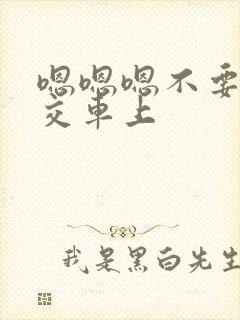 嗯嗯嗯不要
交车上
我是黑白先生